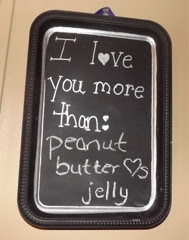 I l♥ve
you more
than:
peanut
butter ♡s
jelly